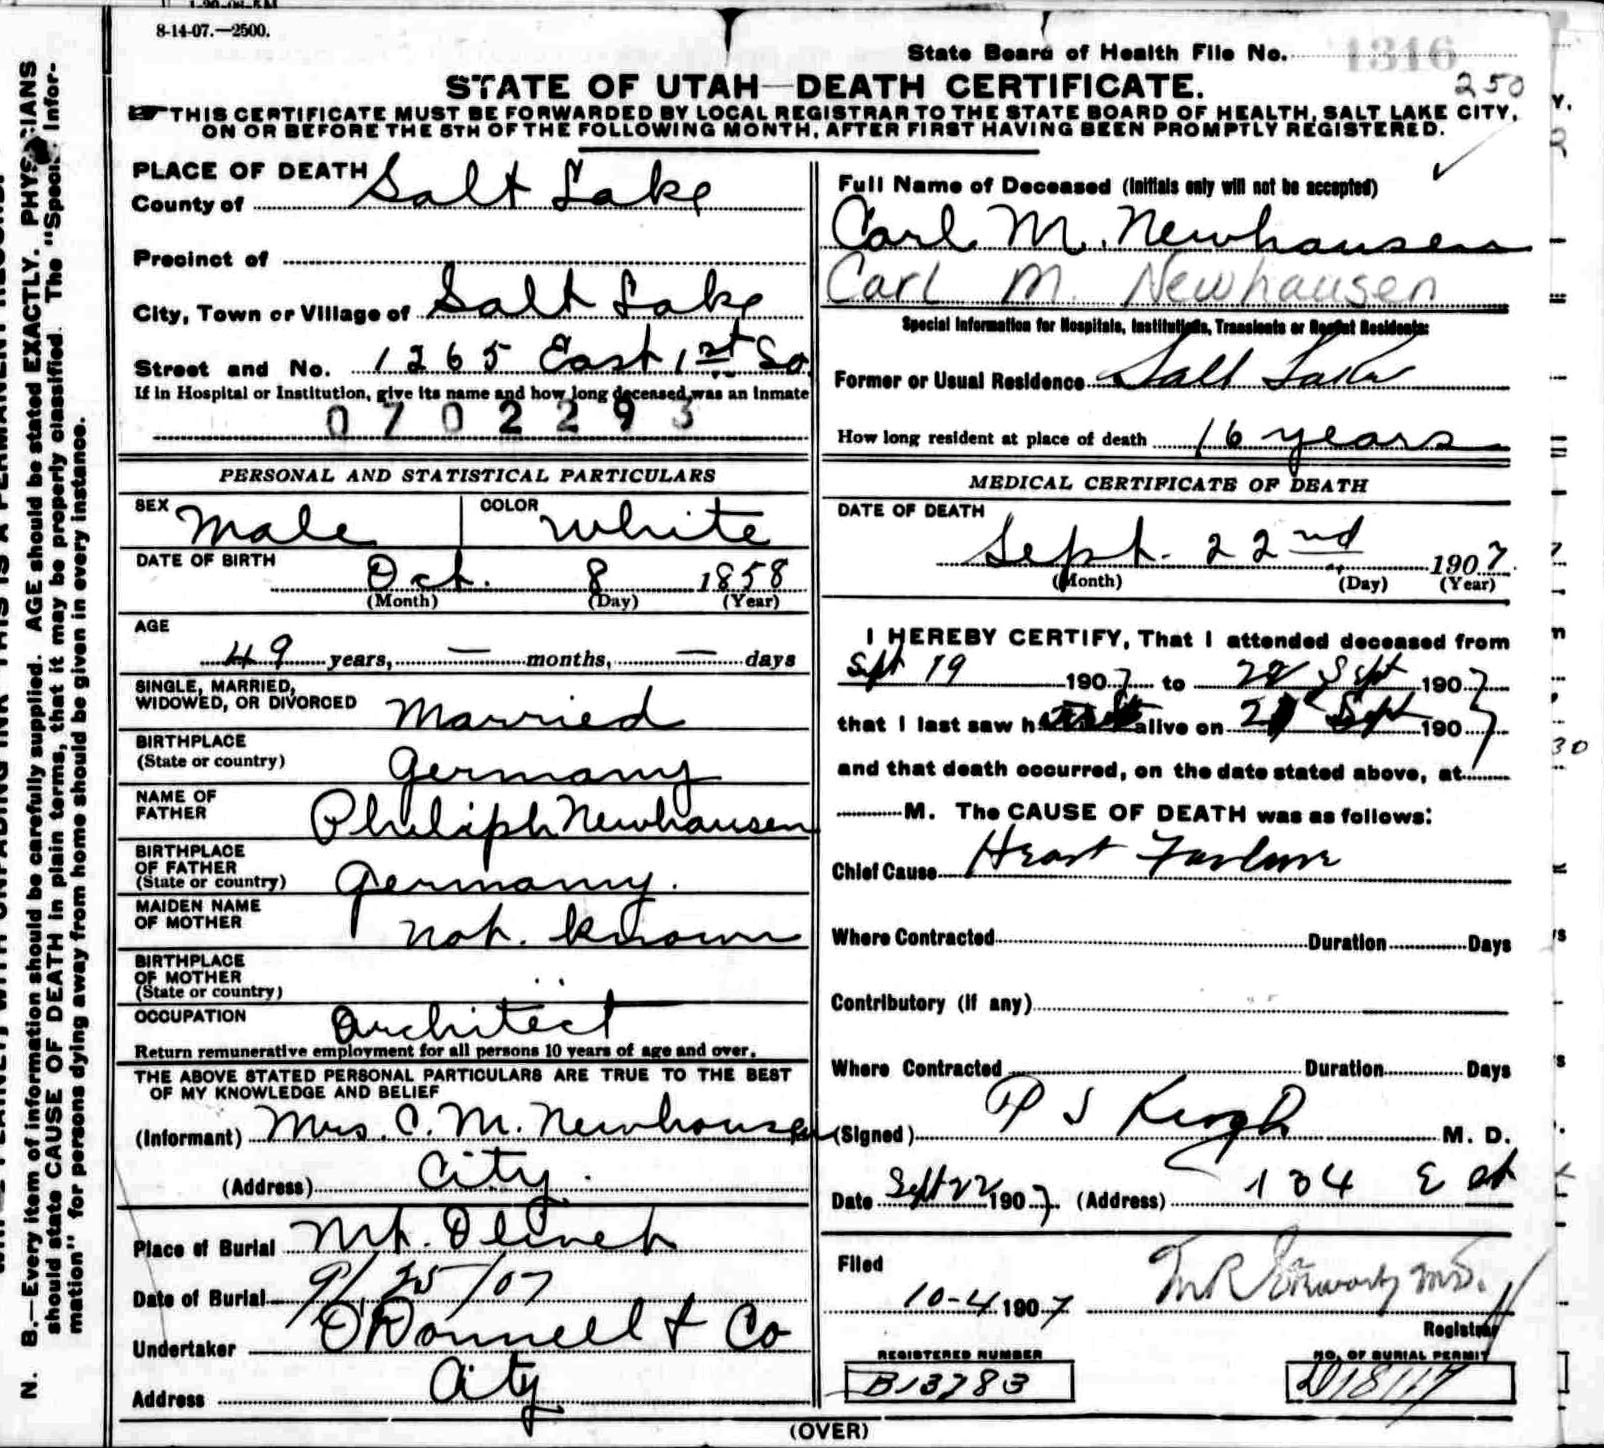 8-14-07.—2500.
State Board of Health File No. 1316
250
STATE OF UTAH—DEATH CERTIFICATE.
THIS CERTIFICATE MUST BE FORWARDED BY LOCAL REGISTRAR TO THE STATE BOARD OF HEALTH, SALT LAKE CITY,
ON OR BEFORE THE 5TH OF THE FOLLOWING MONTH, AFTER FIRST HAVING BEEN PROMPTLY REGISTERED.
PLACE OF DEATH
County of Salt Lake
Precinct of
City, Town or Village of Salt Lake
Street and No. 1265 East 1st So
If in Hospital or Institution, give its name and how long deceased was an inmate
0702293
PERSONAL AND STATISTICAL PARTICULARS
SEX Male COLOR White
DATE OF BIRTH
Oct. 8 1858
(Month) (Day) (Year)
AGE
49 years, — months, — days
SINGLE, MARRIED,
WIDOWED, OR DIVORCED Married
BIRTHPLACE
(State or country) Germany
NAME OF
FATHER Philiph Newhausen
BIRTHPLACE
OF FATHER
(State or country) Germany.
MAIDEN NAME
OF MOTHER not known
BIRTHPLACE
OF MOTHER
(State or country)
OCCUPATION Architect
Return remunerative employment for all persons 10 years of age and over.
THE ABOVE STATED PERSONAL PARTICULARS ARE TRUE TO THE BEST
OF MY KNOWLEDGE AND BELIEF
(Informant) Mrs. C. M. Newhousen
(Address) City.
Place of Burial Mt. Olivet
Date of Burial 9/25/07
Undertaker O'Donnell & Co
Address City
Full Name of Deceased (Initials only will not be accepted)
Carl M. Newhausen
Carl M. Newhausen
Special Information for Hospitals, Institutions, Transients or Recent Residents:
Former or Usual Residence Salt Lake
How long resident at place of death 16 years
MEDICAL CERTIFICATE OF DEATH
DATE OF DEATH
Sept. 22nd 1907
(Month) (Day) (Year)
I HEREBY CERTIFY, That I attended deceased from
Sept 19 1907 to 22 Sept 1907
that I last saw h alive on Sept 1907
and that death occurred, on the date stated above, at
M. The CAUSE OF DEATH was as follows:
Chief Cause Heart Failure
Where Contracted Duration Days
Contributory (if any)
Where Contracted Duration Days
(Signed) P S Keogh M. D.
Date Sept 22 1907. (Address) 134 E
Filed
10-4 1907 M.D.
Registrar
REGISTERED NUMBER
B13783
NO. OF BURIAL PERMIT
(OVER)
N. B.—Every item of information should be carefully supplied. AGE should be stated EXACTLY. PHYSICIANS
should state CAUSE OF DEATH in plain terms, that it may be properly classified. The "Special Infor-
mation" for persons dying away from home should be given in every instance.